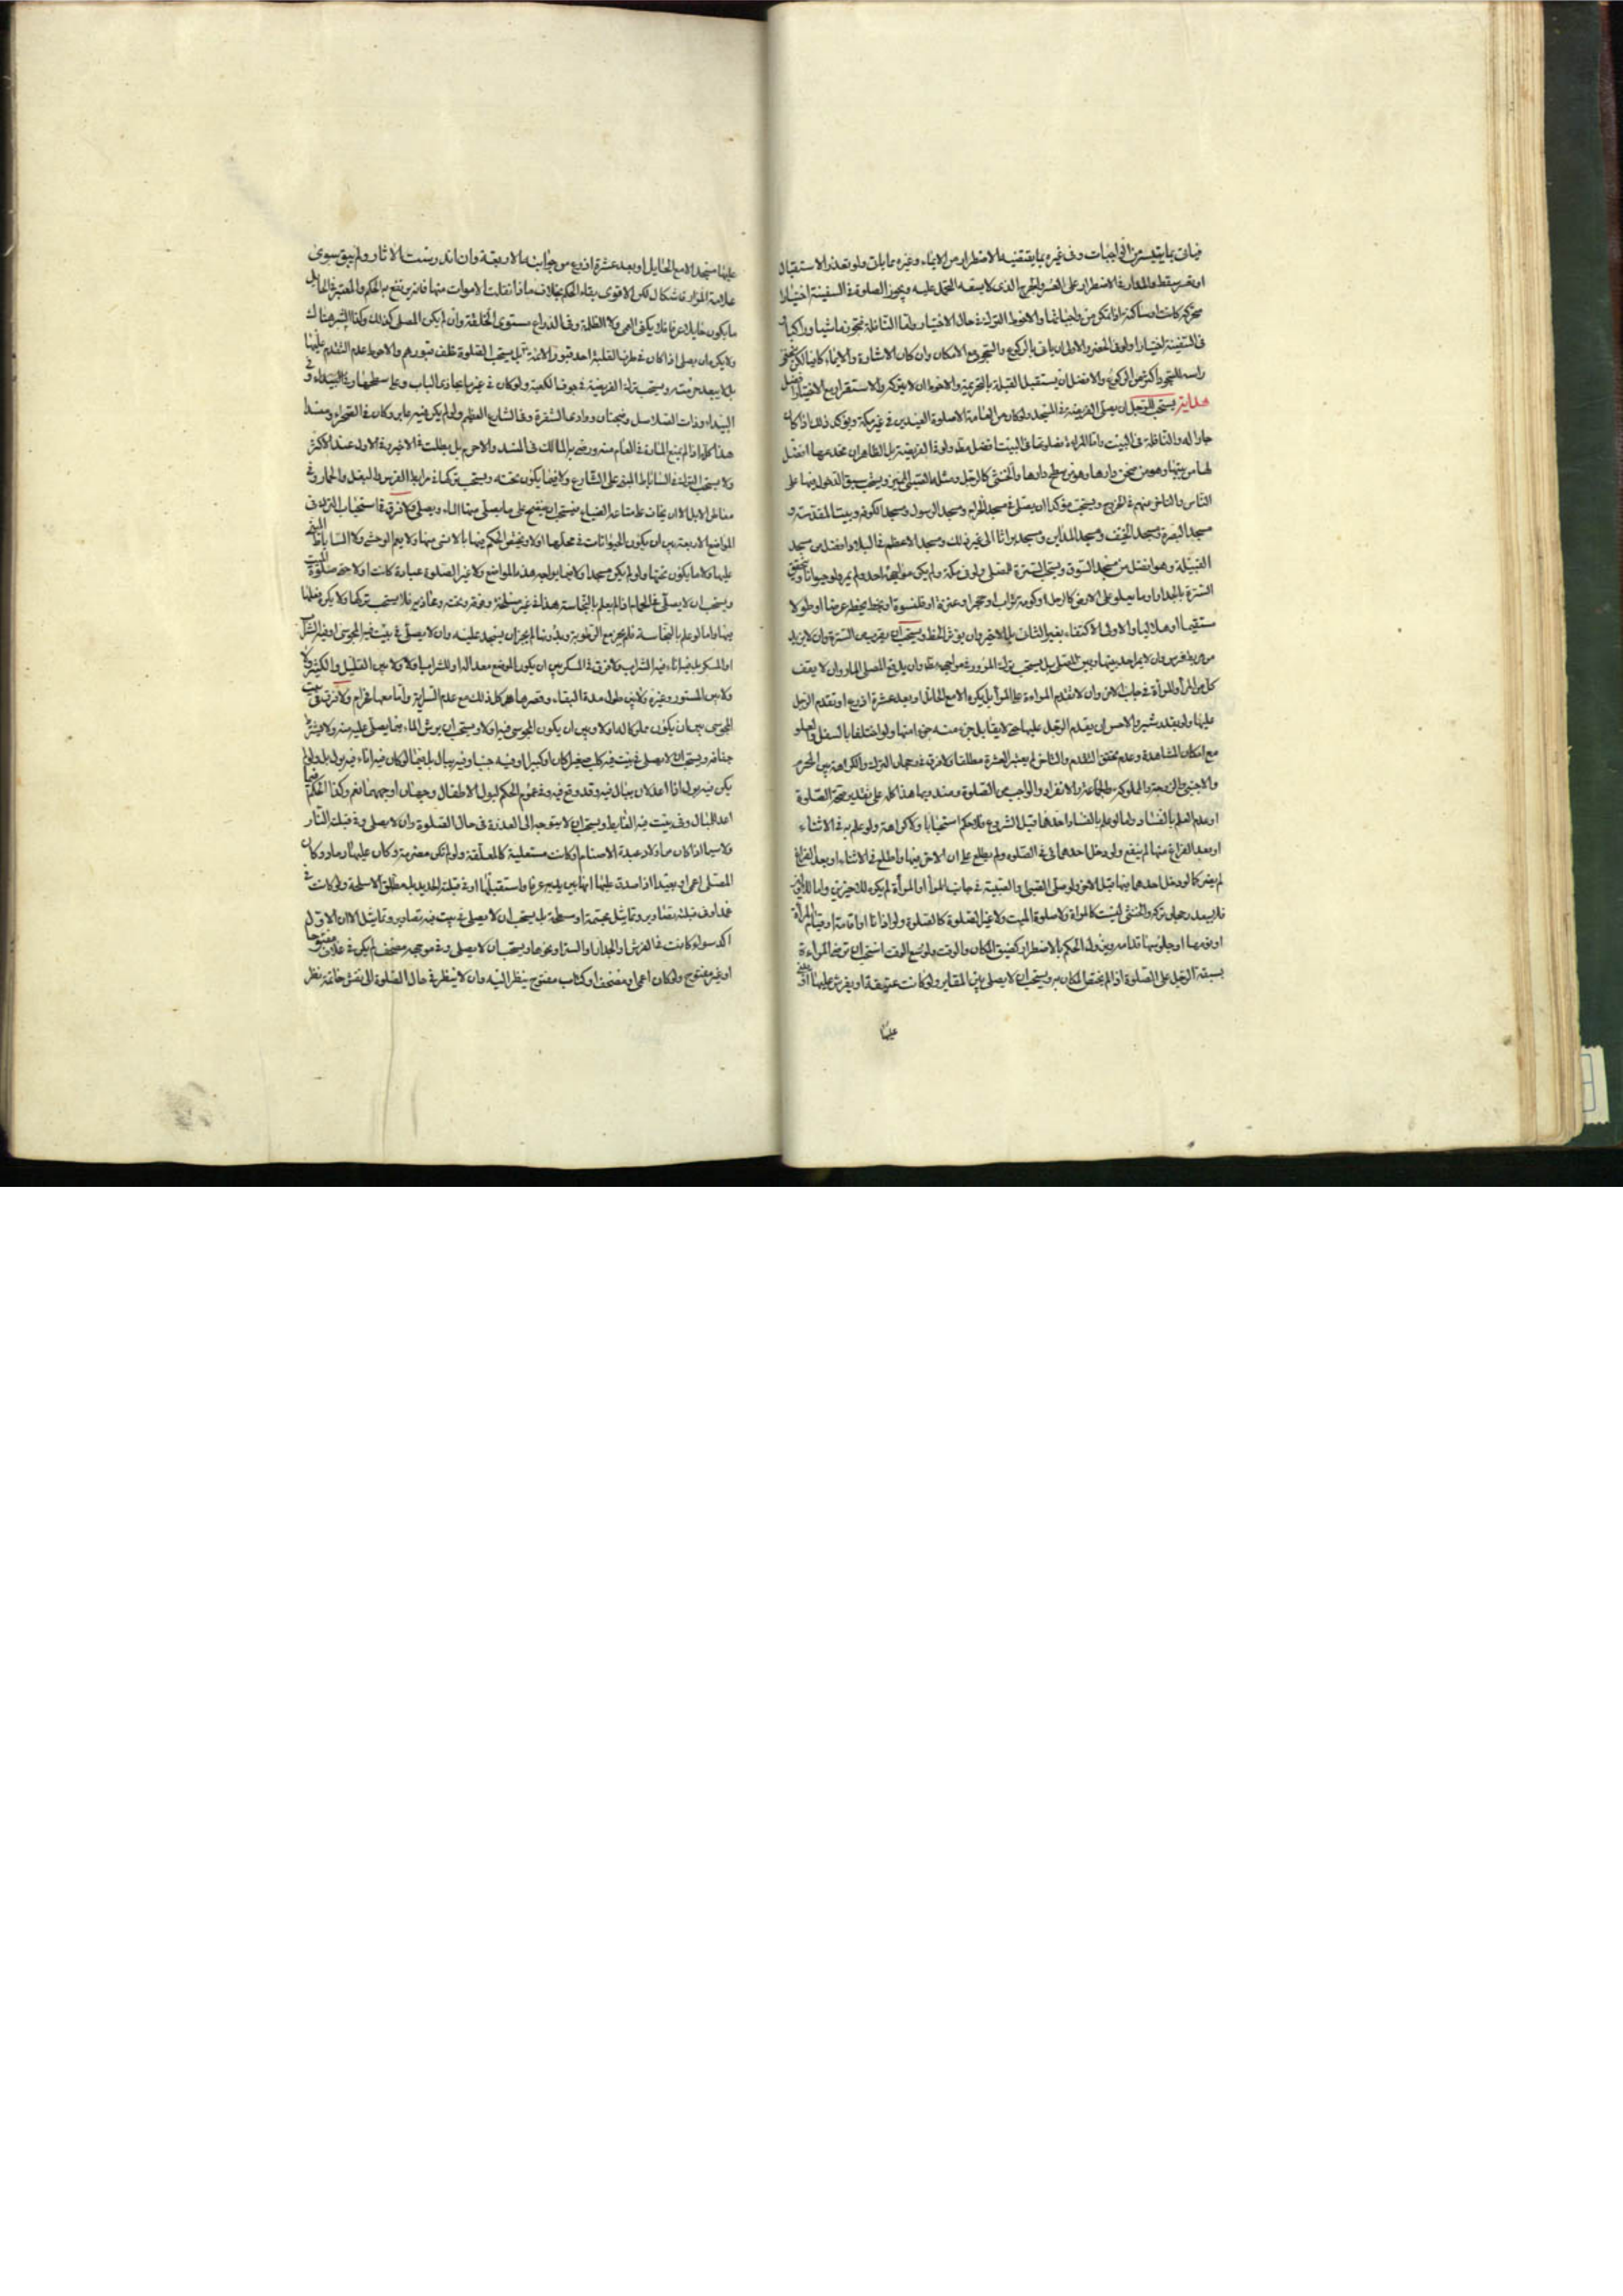 فياتى بما يتيسر من الواجبات وفى غيره بما يقتضيه الاضطرار من الايماء وغيره مما يات ولو تعذر الاستقبال
سقط والمدار فى الاضطرار على العسر والحرج الذى لا يسعه التحمل عليه ويجوز الصلوة فى السفينة اختيارا
متحركة كانت او ساكنة اذا تمكن من واجباتها والاحوط الترك فى حال الاختيار واما النافلة فتجوز ماشيا وراكبا
فى السفينة اختيارا ولو فى الحضر والاولى ان ياتى بالركوع والسجود مع الامكان وان كان الاشارة والايماء كافيا لكن
راسه للسجود اكثر من الركوع والافضل ان يستقبل القبلة بالتحريمة والاحوط ان لا يتركه والاستقرار مع الاختيار افضل
هداية يستحب للرجل ان يصلى الفريضة فى المسجد ولو كان من العامة الا صلوة العيدين فى غير مكة ويؤكد ذلك اذا كان
جارا له والنافلة فى البيت واما المراة فصلوتها فى البيت افضل مطلقا ولو فى الفريضة بل الظاهر ان مخدعها افضل
لها من بيتها وهو من صحن دارها وهو من سطح دارها والخنثى كالرجل ومثله الصبى المميز ويستحب سبق الدخول فيها على
الناس والتاخر عنهم فى الخروج ويستحب مؤكدا ان يصلى فى مسجد الحرام ومسجد الرسول ومسجد الكوفة وبيت المقدس و
مسجد البصرة ومسجد الخيف ومسجد المداين ومسجد براثا الى غير ذلك ومسجد الاعظم فى البلد وافضل من مسجد
القبيلة وهو افضل من مسجد السوق ويستحب السترة للمصلى ولو فى مكة ولم يكن مواجهة احد ولم يمر ولو حيوانا وتتحقق
السترة بالجدار او ما يعلو على الارض كالرحل او كومة تراب او حجر او عنزة او قلنسوة او بخط يخطه عرضا او طولا
مستقيما او هلاليا والاولى الاكتفاء بغير الثالث بل الاخير وان يؤثر الخط ويستحب ان يقرب من السترة وان لا يزيد
من مربط فرس وان لا يمر احد بينها وبين المصلى بل يستحب ترك المرور فى مواجهه مطلقا وان يدفع المصلى المار وان لا يقف
كل من المرأ والمرأة فى جانب الاخر وان لا تتقدم المراءة على المرأ بل يكره الا مع الحائل او بعد عشرة اذرع او تقدم الرجل
عليها ولو بقدر شبر والاحسن ان يتقدم الرجل عليها حتى لا يقابل جزء منه جزء امنها ولو اختلفا بالسفل والعلو
مع امكان المشاهدة وعدم تحقق التقدم والتاخر لم يعتبر العشرة مطلقا ولا فرق فى رجحان الترك والكراهة بين المحرم
والاجنبى والزوجة والمملوكة والجماعة والانفراد والواجب من الصلوة ومندوبها هذا كله على تقدير صحة الصلوة
او عدم العلم بالفساد واما لو علم بالفساد احدهما قبل الشروع فلا حكم استحبابا ولا كراهة ولو علم به فى الاثناء
او بعد الفراغ منها لم ينفع ولو دخل احدهما فى الصلوة ولم يطلع على ان الاخر فيها واطلع فى الاثناء او بعد الفراغ
لم يضر كما لو دخل احدهما فيها قبل الاخر ولو صلى الصبى والصبية فى جانب المرأ او المرأة لم يكن للاخيرين واما للاولين
فلا يبعد رجحان تركه والخنثى ليست كالمراة ولا صلوة الميت ولا غير الصلوة كالصلوة ولو اذانا او اقامة او قيام المرأة
او نومها او جلوسها قدامه ويزول الحكم بالاضطرار كضيق المكان والوقت ولو وسع الوقت استحب ان ترضى المراءة
بسبق الرجل على الصلوة اذا لم يختص المكان به ويستحب ان لا يصلى بين المقابر ولو كانت عتيقة او يفرش عليها او
عليها
عليها مسجد الا مع الحايل او بعد عشرة اذرع من جوانبه الاربعة وان اندرست الاثار ولم يبق سوى
علامة المزار فاشكال لكن الاقوى بقاء الحكم بخلاف ما اذا نقلت الاموات منها فانه يرتفع به الحكم والمعتبر فى الحايل
ما يكون حايلا عرفا فلا يكفى العمى ولا الظلمة وفى الذراع مستوى الخلقة وان لم يكن المصلى كذلك وكذا الشبر هناك
ولا يكره ان يصلى اذا كان فى طرف القبلة احد قبور الائمة بل يستحب الصلوة خلف قبورهم والاحوط عدم التقدم عليها
بل لا يبعد حرمته ويستحب ترك الفريضة فى جوف الكعبة ولو كان فى غير ما يحاذى الباب وعلى سطحها وفى البيداء و
البيداء وذات الصلاسل وضجنان ووادى الشقرة وفى الشارع العظيم ولو لم يكن فيه مار وكان فى الصحراء ومنسدا
هذا كله اذا لم يمنع المارة فى العام منه ورضى به المالك فى المنسد والا حرم بل بطلت فى الاخير وفى الاول عند الاكثر
ولا يستحب الترك فى الساباط المبنى على الشارع ولا فيما يكون تحته ويستحب تركها فى مرابط الفرس والبغل والحمار وفى
معاطن الابل الا ان يخاف على متاعه الضياع فيستحب ان ينضح على ما يصلى فيه الماء ويصلى ولا فرق فى استحباب الترك فى
المواضع الاربعة بين ان يكون الحيوانات فى محلها او لا ويختص الحكم فيها بالانسى منها ولا يعم الوحشى ولا الساباط المبنى
عليها ولا ما يكون تحتها ولو لم يكن مسجدا ولا فيما يواجه هذه المواضع ولا غير الصلوة عبادة كانت او لا حتى صلوة الميت
ويستحب ان لا يصلى فى الحمام اذا لم يعلم بالنجاسة هذا فى غير مسلخه وموقده وعاذيره فلا يستحب تركها ولا يكره فعلها
فيها واما لو علم بالنجاسة فلم يجز مع الرطوبة وبدونها لم يجز ان يسجد عليه وان لا يصلى فى بيت فيه المجوسى او فيه الشراب
او المسكر بل فيه اناء فيه الشراب ولا فرق فى المسكر بين ان يكون الموضع معد اله او للشراب او لا ولا بين القليل والكثير و
ولا بين المستور وغيره ولا بين طول مدة البقاء وقصرها هذا كله كذلك مع عدم السراية واما معها فحرام ولا فرق فى بيت
المجوسى بين ان يكون ملوكا له او لا وبين ان يكون المجوسى فيه او لا ويستحب ان يرش الماء فيما يصلى عليه منه ولا يشترط
جفافه ويستحب ان لا يصلى فى بيت فيه كلب صغيرا كان او كبيرا او فيه جنب او فيه يبال بل فيما لو كان فيه اناء فيه بول بل ولو لم
يكن فيه بول اذا اعد لان يبال فيه وقد وقع فيه وفى عموم الحكم لبول الاطفال وجهان اوجههما نعم وكذا الحكم فيما
اعد للبال وفى بيت فيه الغايط ويستحب ان لا يتوجه الى العذرة فى حال الصلوة وان لا يصلى وفى قبلته النار
ولا سيما اذا كان من اولاد عبدة الاصنام او كانت مستعلية كالمعلقة ولو لم تكن مضرمة وكان عليها رماد وكان
المصلى اعمى او بعيدا اذا صدق عليها انها بين يديه عرفا واستقبلها او فى قبلته الحديد بل مطلق الاسلحة ولو كانت فى
غمد او فى قبلته تصاوير وتماثيل مجسمة او مسطحة بل يستحب ان لا يصلى فى بيت فيه تصاوير وتماثيل الا ان الاول
اكد سواء كانت فى الفرش او الجدار او الستر او نحوها ويستحب ان لا يصلى وفى موجهه مصحف لم يكن فى غلاف مفتوحا
او غير مفتوح ولو كان اعمى او مصحف او كتاب مفتوح ينظر اليه وان لا ينظر فى حال الصلوة الى نقش خاتمه نظر